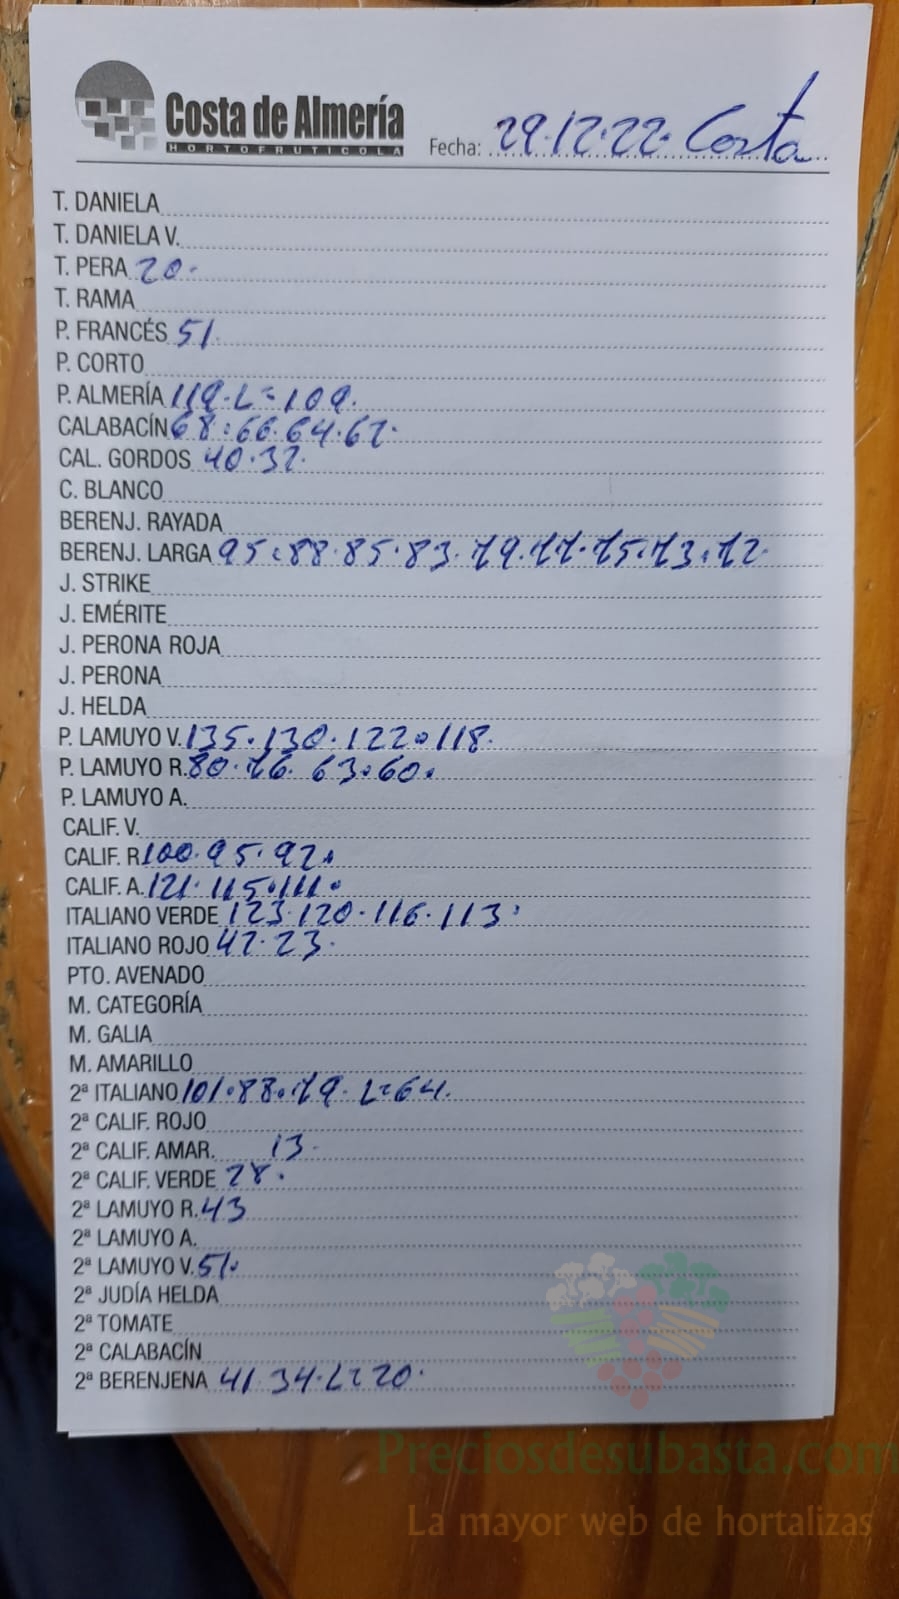 Costa de Almería
HORTOFRUTICOLA
Fecha: 29.12.22. Costa
T. DANIELA
T. DANIELA V.
T. PERA 20.
T. RAMA
P. FRANCÉS 51.
P. CORTO
P. ALMERÍA 119. L=109.
CALABACÍN 68.66.64.62.
CAL. GORDOS 40.32.
C. BLANCO
BERENJ. RAYADA
BERENJ. LARGA 95.88.85.83.79.77.75.73.72.
J. STRIKE
J. EMÉRITE
J. PERONA ROJA
J. PERONA
J. HELDA
P. LAMUYO V. 135.130.122.118.
P. LAMUYO R. 80.76.63.60.
P. LAMUYO A.
CALIF. V.
CALIF. R 100.95.92.
CALIF. A. 121.115.111.
ITALIANO VERDE 123.120.116.113.
ITALIANO ROJO 42.23.
PTO. AVENADO
M. CATEGORÍA
M. GALIA
M. AMARILLO
2ª ITALIANO 101.88.79. L=64.
2ª CALIF. ROJO
2ª CALIF. AMAR. 13.
2ª CALIF. VERDE 28.
2ª LAMUYO R. 43
2ª LAMUYO A.
2ª LAMUYO V. 51.
2ª JUDÍA HELDA
2ª TOMATE
2ª CALABACÍN
2ª BERENJENA 41 34. L=20.
Preciosdesubasta.com
La mayor web de hortalizas